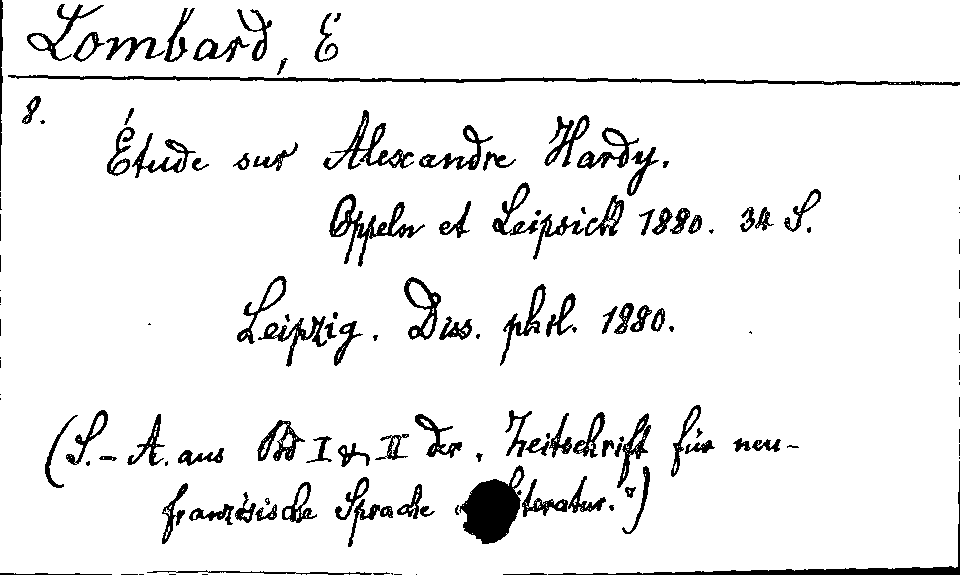 Lombard, E
8.
Étude sur Alexandre Hardy.
Oppeln et Leipsick 1880. 34 S.
Leipzig. Diss. phil. 1880.
(S.-A. aus Bd I & II der „Zeitschrift für neu-
französische Sprache iteratur.")